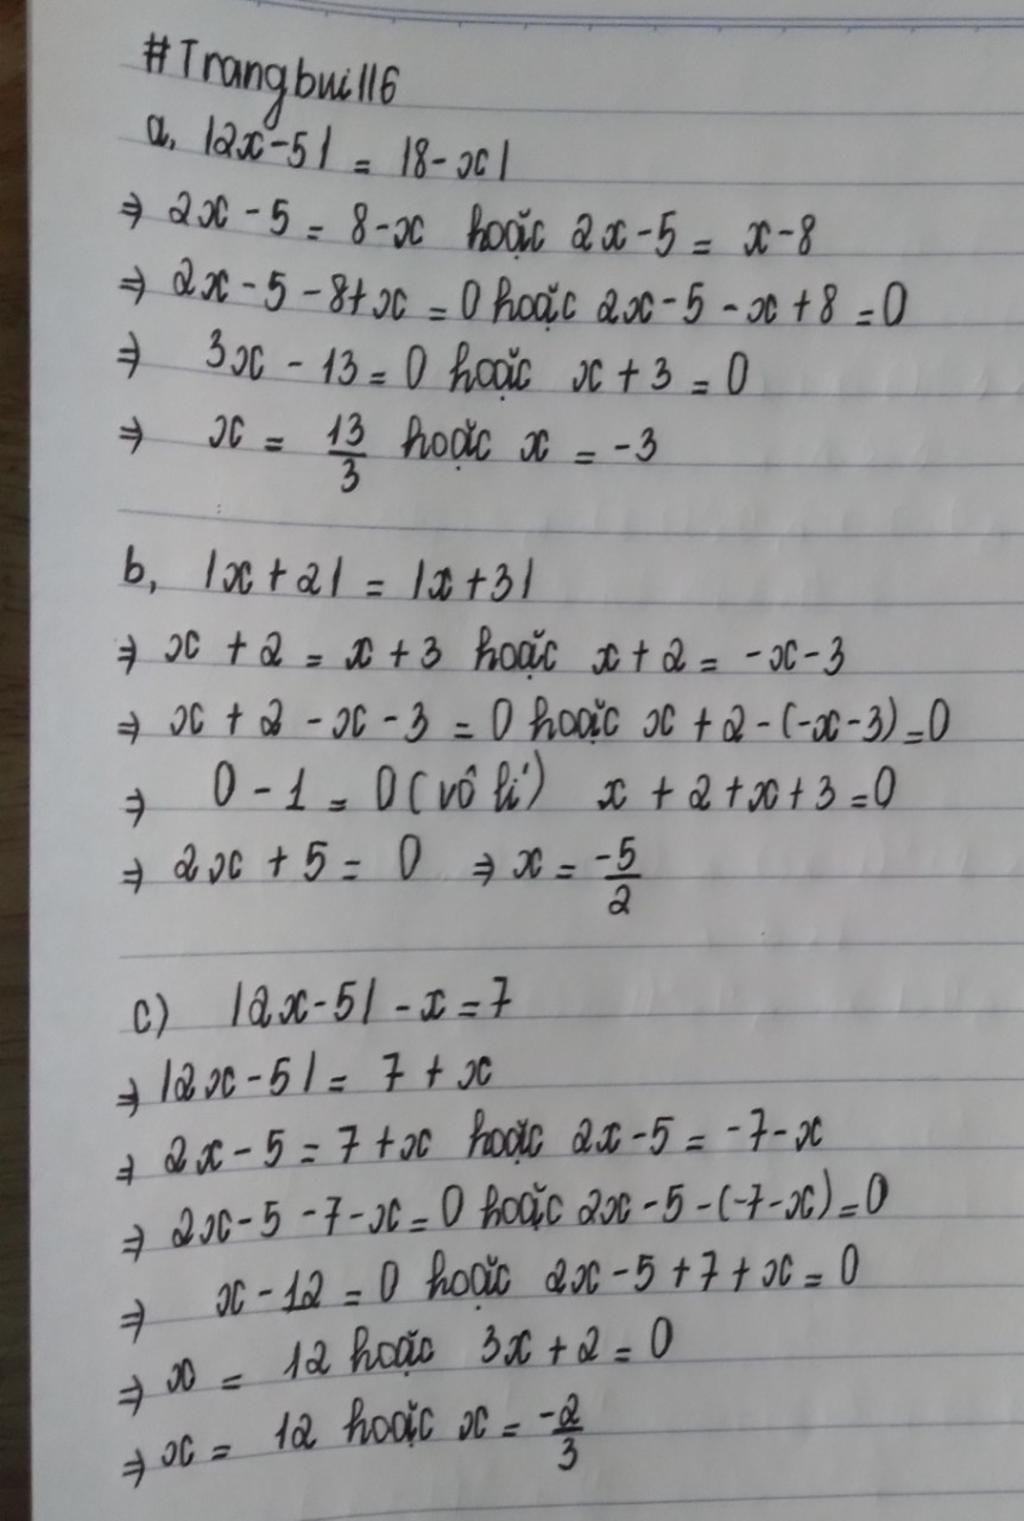 #Trangbui116
a, |2x-5| = |8-x|
⇒ 2x - 5 = 8-x hoặc 2x-5 = x-8
⇒ 2x - 5 - 8+x = 0 hoặc 2x-5 -x+8 =0
⇒ 3x - 13 = 0 hoặc x + 3 = 0
⇒ x = 13/3 hoặc x = -3
b, |x+2| = |x+3|
⇒ x + 2 = x + 3 hoặc x+2 = -x-3
⇒ x + 2 - x - 3 = 0 hoặc x + 2-(-x-3)=0
⇒ 0 - 1 = 0 (vô lí) x + 2 + x + 3 =0
⇒ 2x + 5 = 0 ⇒ x = -5/2
c) |2x-5| - x = 7
⇒ |2x-5| = 7 + x
⇒ 2x - 5 = 7 + x hoặc 2x-5 = -7-x
⇒ 2x-5 -7-x = 0 hoặc 2x-5-(-7-x)=0
⇒ x - 12 = 0 hoặc 2x-5+7+x = 0
⇒ x = 12 hoặc 3x+2 = 0
⇒ x = 12 hoặc x = -2/3